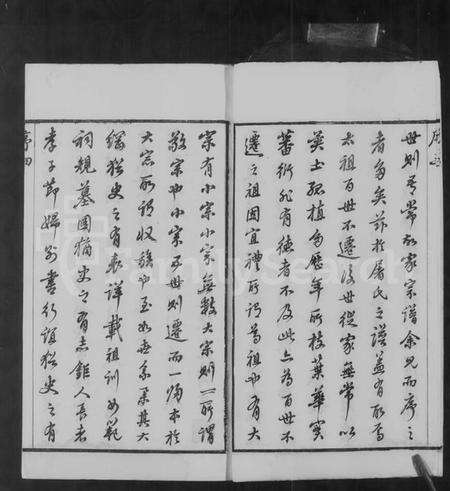 世則多常形家宗譜余見而序之
者多矣茲於屠氏之譜蓋有取焉
太祖百世不遷後世從家無常以
英士孤植多歷年所枝葉華實
蕃衍非有德者不及此亦為百世不
遷之祖因宜禮所謂為祖也有大
宗有小宗小宗無數大宗則一所謂
敬宗也小宗五世則遷而一歸本於
大宗所謂收族也至如世系条其大
綱猶史之有表詳載祖訓如範
祠規墓圖猶史之有志鉅人長者
孝子節婦為書行誼猶史之有
序四
FamilySearch